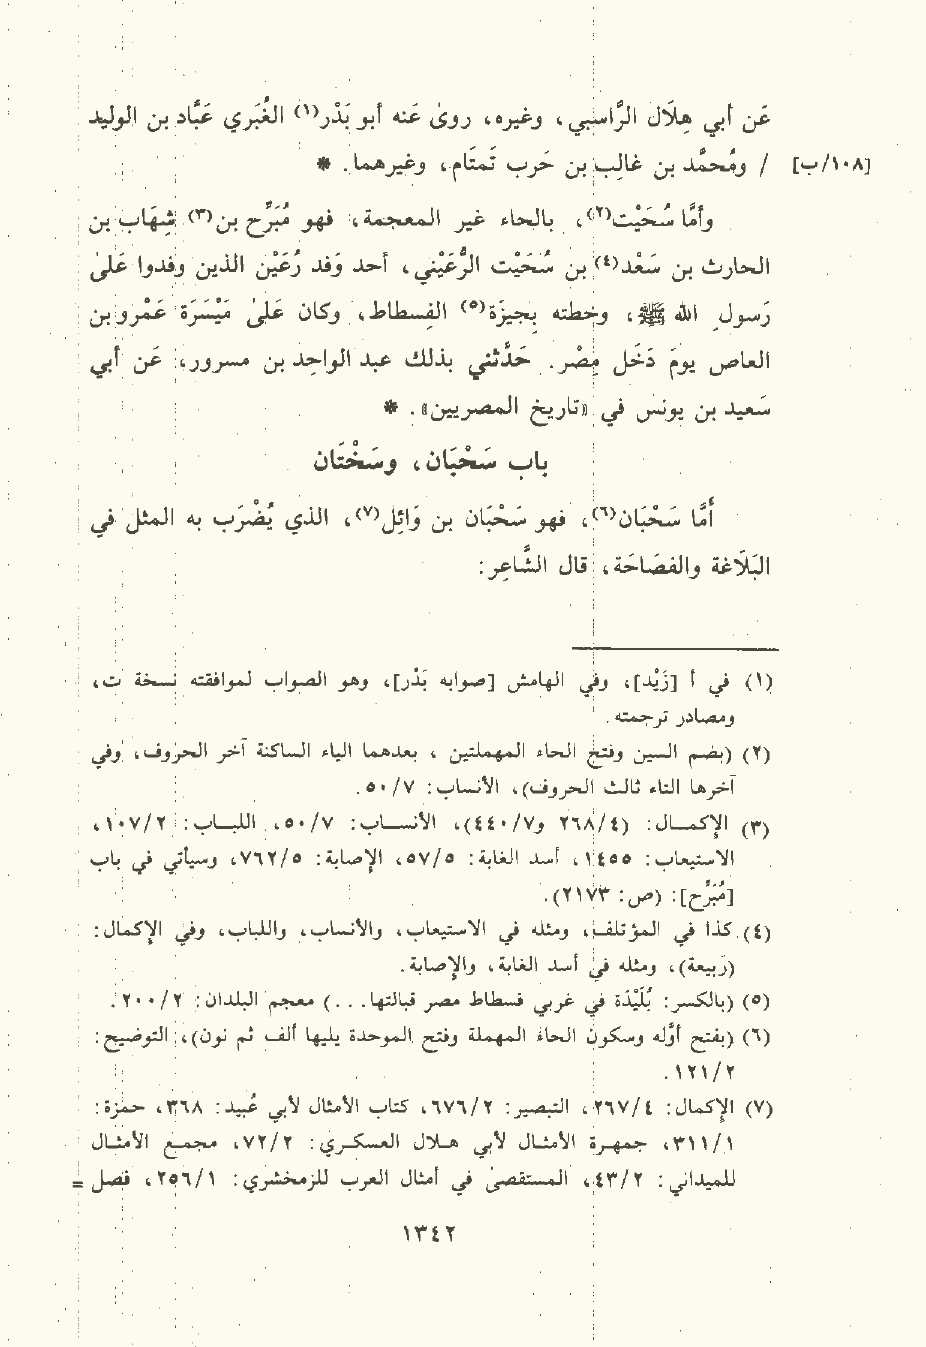 عَن أبي هِلَال الرَّاسبي، وغيره، روىٰ عَنه أبو بَدْر(١) الغُبَري عَبَّاد بن الوليد
[١٠٨/ب] / ومُحمَّد بن غالِب بن حَرب تَمتَام، وغيرهما. *
وأمَّا سُحَيْت(٢)، بالحاء غير المعجمة، فهو مُبَرِّح بن(٣) شِهَاب بن
الحارث بن سَعْد(٤) بن سُحَيْت الرُّعَيْني، أحد وَفد رُعَيْن الذين وفدوا عَلىٰ
رَسولِ الله ﷺ، وخطته بِجيزَة(٥) الفسطاط، وكان عَلىٰ مَيْسَرَة عَمْرو بن
العاص يوم دَخَل مِصْر. حَدَّثني بذلك عبد الواحِد بن مسرور، عَن أبي
سَعيد بن يونس في «تاريخ المصريين». *
باب سَحْبَان، وسَخْتَان
أمَّا سَحْبَان(٦)، فهو سَحْبَان بن وَائِل(٧)، الذي يُضْرَب به المثل في
البَلَاغة والفَصَاحَة، قال الشَّاعِر:
(١) في أ [زَيْد]، وفي الهامش [صوابه بَدْر]، وهو الصواب لموافقته نسخة ت،
ومصادر ترجمته.
(٢) (بضم السين وفتح الحاء المهملتين، بعدهما الياء الساكنة آخر الحروف، وفي
آخرها التاء ثالث الحروف)، الأنساب: ٥٠/٧.
(٣) الإكمال: (٢٦٨/٤ و٤٤٠/٧)، الأنساب: ٥٠/٧، اللباب: ١٠٧/٢،
الاستيعاب: ١٤٥٥، أسد الغابة: ٥٧/٥، الإصابة: ٧٦٢/٥، وسيأتي في باب
[مُبَرِّح]: (ص: ٢١٧٣).
(٤) كذا في المؤتلف، ومثله في الاستيعاب، والأنساب، واللباب، وفي الإكمال:
(رَبيعة)، ومثله في أسد الغابة، والإصابة.
(٥) (بالكسر: بُلَيْدَة في غربي فسطاط مصر قبالتها. . .) معجم البلدان: ٢٠٠/٢.
(٦) (بفتح أوَّله وسكون الحاء المهملة وفتح الموحدة يليها ألف ثم نون)، التوضيح:
١٢١/٢.
(٧) الإكمال: ٢٦٧/٤، التبصير: ٦٧٦/٢، كتاب الأمثال لأبي عُبيد: ٣٦٨، حمزة:
٣١١/١، جمهرة الأمثال لأبي هلال العسكري: ٧٢/٢، مجمع الأمثال
للميداني: ٤٣/٢، المستقصىٰ في أمثال العرب للزمخشري: ٢٥٦/١، فصل =
١٣٤٢